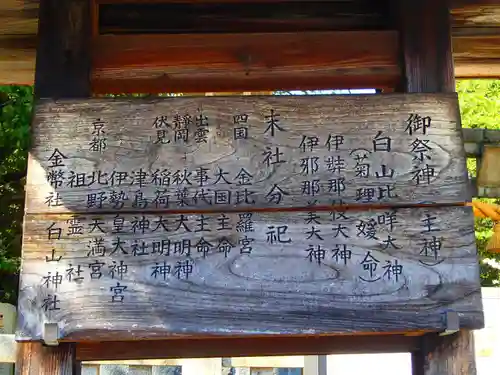 御祭神（主神）
白山比咩大神
（菊理媛命）
伊弉那岐大神
伊邪那美大神
末社分祀
四国 金比羅宮
出雲 大国主命
事代主命
静岡 秋葉大明神
伏見 稲荷大明神
津島神社
伊勢皇大神宮
京都 北野天満宮
祖霊社
金幣社 白山神社